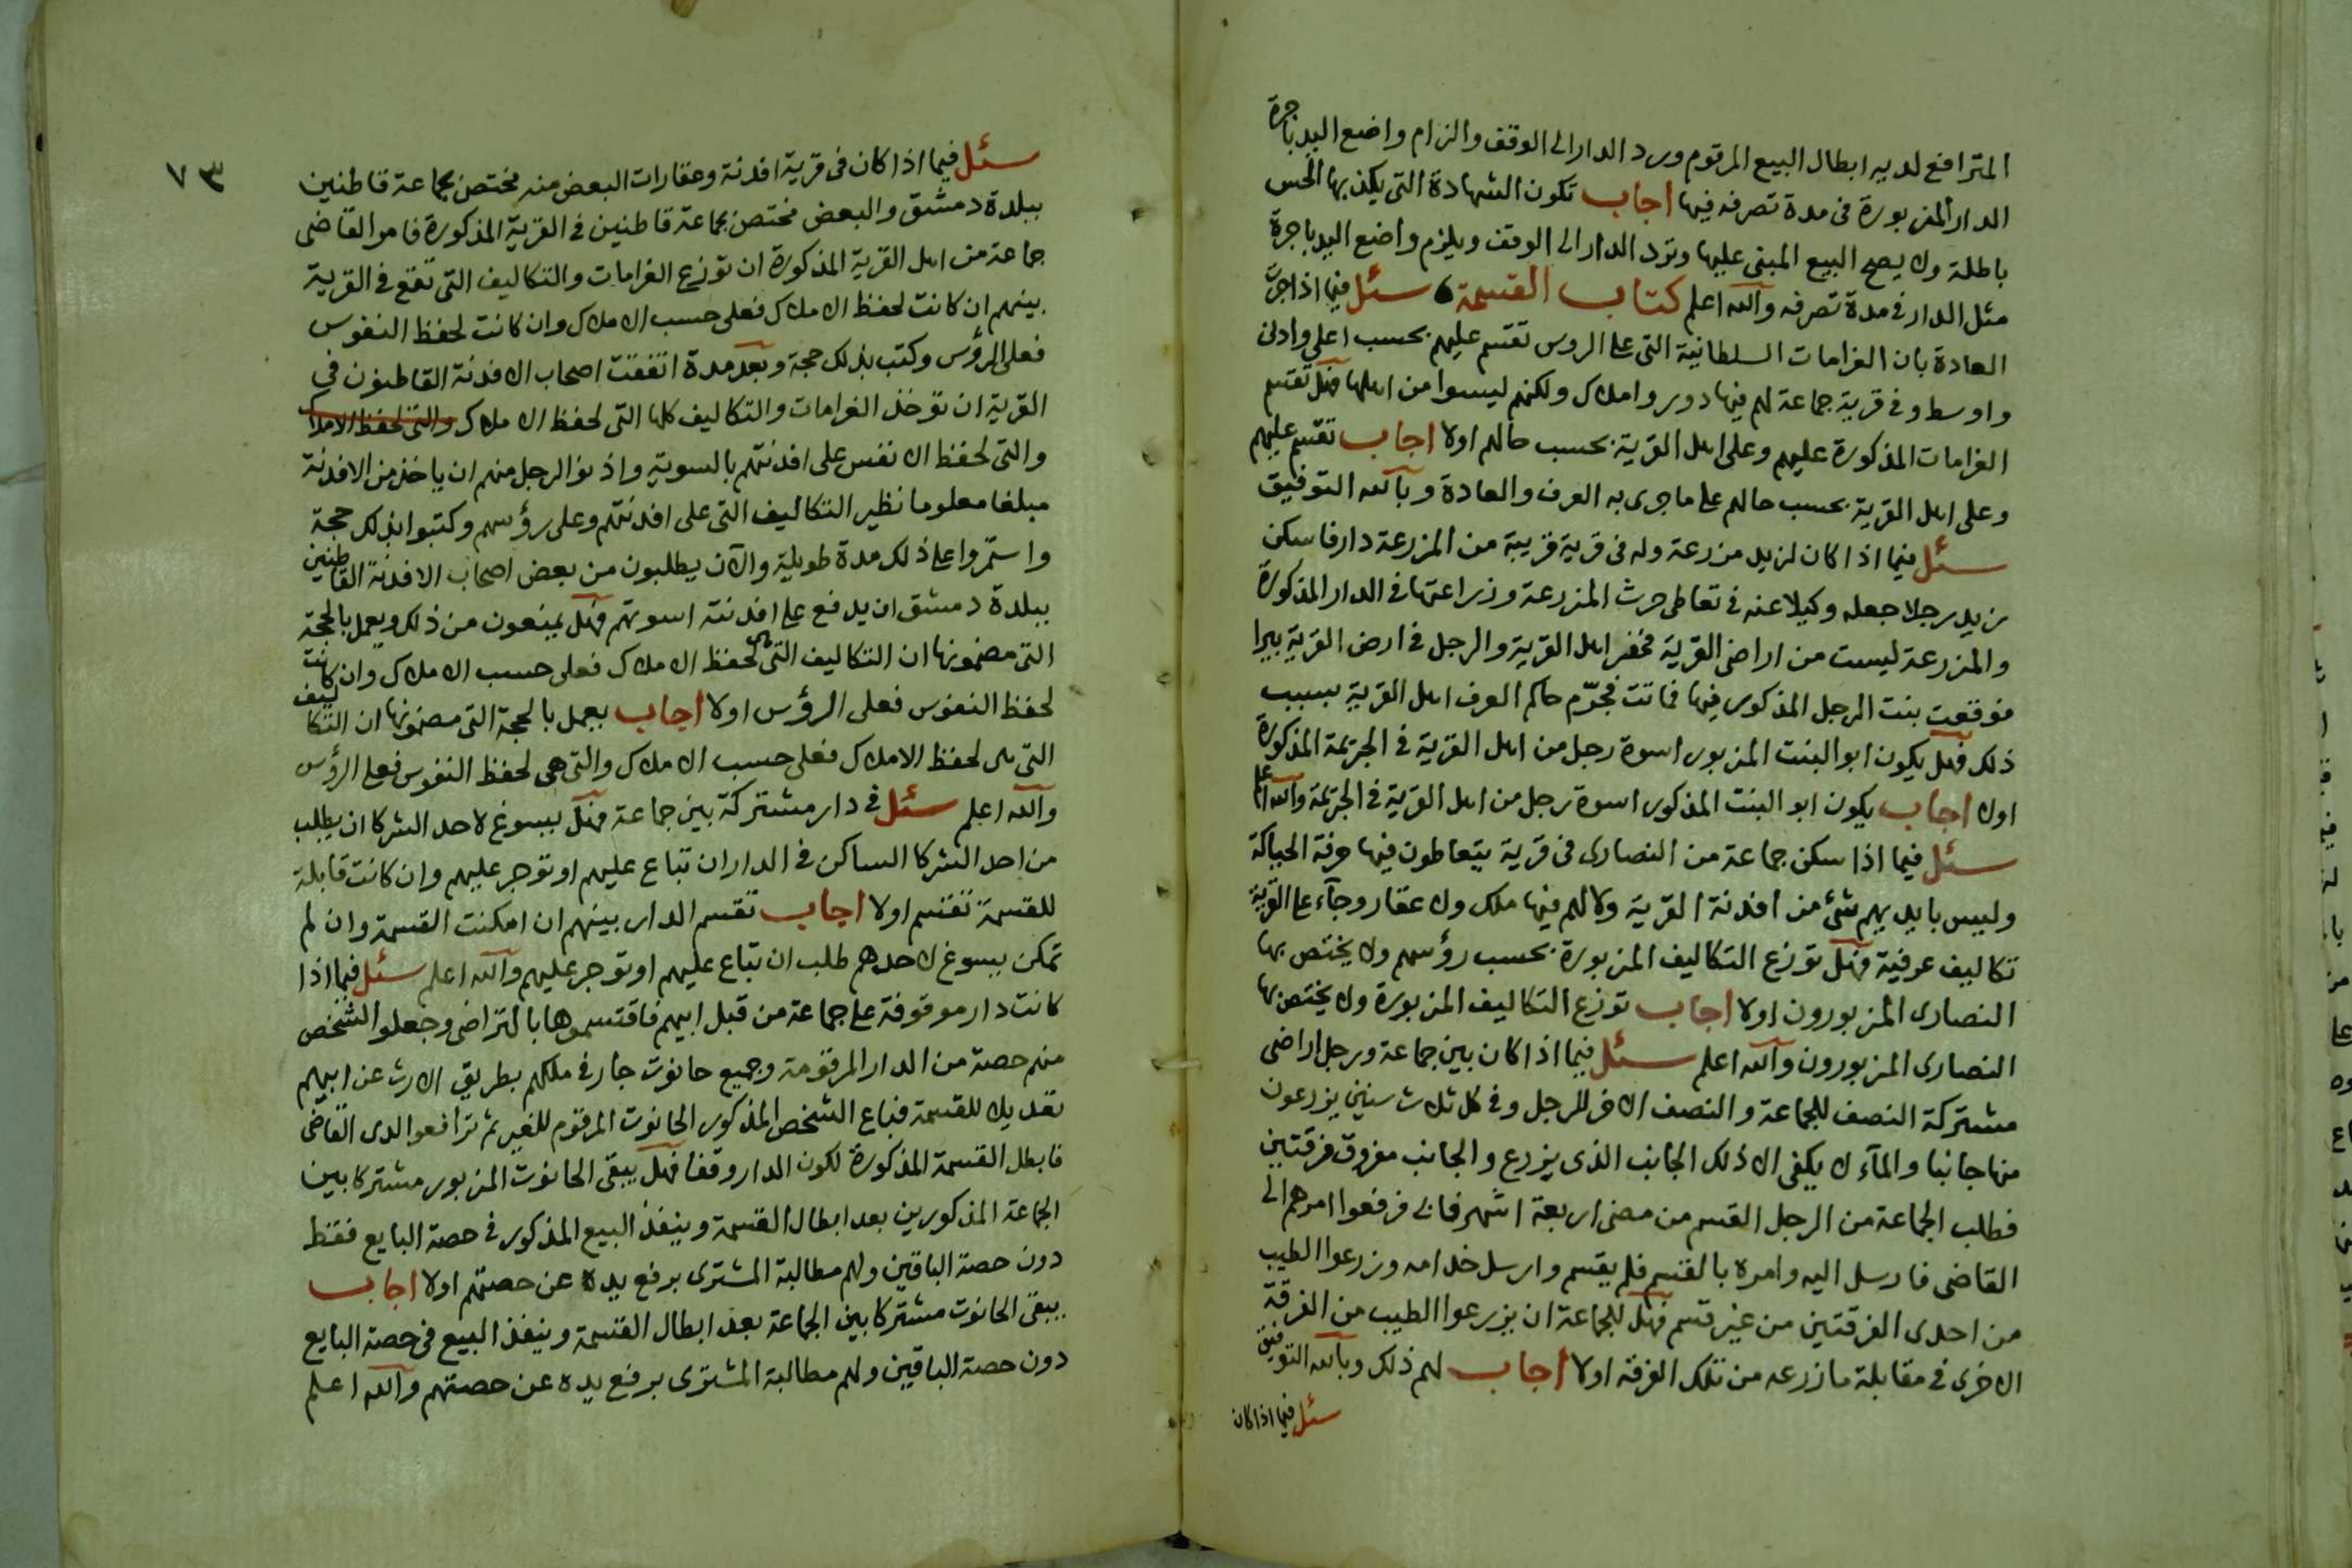 المترافع لديه ابطال البيع المرقوم ورد الدار الى الوقف والزام واضع اليد باجرة
الدار المزبورة فى مدة تصرفه فيها اجاب تكون الشهادة التى يكذبها الحس
باطلة ولا يصح البيع المبنى عليها وترد الدار الى الوقف ويلزم واضع اليد باجرة
مثل الدار فى مدة تصرفه والله اعلم كتاب القسمة سئل فيما اذا جرت
العادة بان الغرامات السلطانية التى على الروس تقسم عليهم بحسب اعلى وادنى
واوسط وفى قرية جماعة لهم فيها دور واملاك ولكنهم ليسوا من اهلها فهل تقسم
الغرامات المذكورة عليهم وعلى اهل القرية بحسب حالهم اولا اجاب تقسم عليهم
وعلى اهل القرية بحسب حالهم على ما جرى به العرف والعادة وبالله التوفيق
سئل فيما اذا كان لزيد مزرعة وله فى قرية قريبة من المزرعة دار فاسكن
زيد رجلا جعله وكيلا عنه فى تعاطى حرث المزرعة وزراعتها فى الدار المذكورة
والمزرعة ليست من اراضى القرية فحفر اهل القرية والرجل فى ارض القرية بيرا
فوقعت بنت الرجل المذكور فيها فماتت فجرّم حاكم العرف اهل القرية بسبب
ذلك فهل يكون ابو البنت المزبور اسوة رجل من اهل القرية فى الجريمة المذكورة
اولا اجاب يكون ابو البنت المذكور اسوة رجل من اهل القرية فى الجريمة والله اعلم
سئل فيما اذا سكن جماعة من النصارى فى قرية يتعاطون فيها حرفة الحياكة
وليس بايديهم شئ من افدنة القرية ولا لهم فيها ملك ولا عقار وجآء على القرية
تكاليف عرفية فهل توزع التكاليف المزبورة بحسب رؤسهم ولا يختص بها
النصارى المزبورون اولا اجاب توزع التكاليف المزبورة ولا يختص بها
النصارى المزبورون والله اعلم سئل فيما اذا كان بين جماعة ورجل اراضى
مشتركة النصف للجماعة والنصف الاخر للرجل وفى كل ثلاث سنين يزرعون
منها جانبا والمآء لا يكفى الا ذلك الجانب الذى يزرع والجانب مفروق فرقتين
فطلب الجماعة من الرجل القسم من مضى اربعة اشهر فابى فرفعوا امرهم الى
القاضى فارسل اليه وامره بالقسم فلم يقسم وارسل خدامه وزرعوا الطيب
من احدى الفرقتين من غير قسم فهل للجماعة ان يزرعوا الطيب من الفرقة
الاخرى فى مقابلة ما زرعه من تلك الفرقة اولا اجاب لهم ذلك وبالله التوفيق
سئل فيما اذا كان
٧٣
سئل فيما اذا كان فى قرية افدنة وعقارات البعض منه مختص بجماعة قاطنين
ببلدة دمشق والبعض مختص بجماعة قاطنين فى القرية المذكورة فامر القاضى
جماعة من اهل القرية المذكورة ان توزع الغرامات والتكاليف التى تقع فى القرية
بينهم ان كانت لحفظ الاملاك فعلى حسب الاملاك وان كانت لحفظ النفوس
فعلى الرؤس وكتب بذلك حجة وبعد مدة اتفقت اصحاب الافدنة القاطنون فى
القرية ان توخذ الغرامات والتكاليف كلها التى لحفظ الاملاك والتى لحفظ الاملاك
والتى لحفظ الانفس على افدنتهم بالسوية واذنوا لرجل منهم ان ياخذ من الافدنة
مبلغا معلوما نظير التكاليف التى على افدنتهم وعلى رؤسهم وكتبوا بذلك حجة
واستمروا على ذلك مدة طويلة والآن يطلبون من بعض اصحاب الافدنة القاطنين
ببلدة دمشق ان يدفع على افدنته اسوتهم فهل يمنعون من ذلك ويعمل بالحجة
التى مضمونها ان التكاليف التى هى لحفظ الاملاك فعلى حسب الاملاك وان كانت
لحفظ النفوس فعلى الرؤس اولا اجاب يعمل بالحجة التى مضمونها ان التكاليف
التى هى لحفظ الاملاك فعلى حسب الاملاك والتى هى لحفظ النفوس فعلى الرؤس
والله اعلم سئل فى دار مشتركة بين جماعة فهل يسوغ لاحد الشركا ان يطلب
من احد الشركا الساكن فى الدار ان تباع عليهم او توجر عليهم وان كانت قابلة
للقسمة تقسم اولا اجاب تقسم الدار بينهم ان امكنت القسمة وان لم
تمكن يسوغ لاحدهم طلب ان تباع عليهم او توجر عليهم والله اعلم سئل فيما اذا
كانت دار موقوفة على جماعة من قبل ابيهم فاقتسموها بالتراضى وجعلوا الشخص
منهم حصة من الدار المرقومة وجميع حانوت جار فى ملكهم بطريق الارث عن ابيهم
تعديلا للقسمة فباع الشخص المذكور الحانوت المرقوم للغير ثم ترافعوا لدى القاضى
فابطل القسمة المذكورة لكون الدار وقفا فهل يبقى الحانوت المزبور مشتركا بين
الجماعة المذكورين بعد ابطال القسمة وينفذ البيع المذكور فى حصة البايع فقط
دون حصة الباقين ولهم مطالبة المشترى برفع يده عن حصتهم اولا اجاب
يبقى الحانوت مشتركا بين الجماعة بعد ابطال القسمة وينفذ البيع فى حصة البايع
دون حصة الباقين ولهم مطالبة المشترى برفع يده عن حصتهم والله اعلم